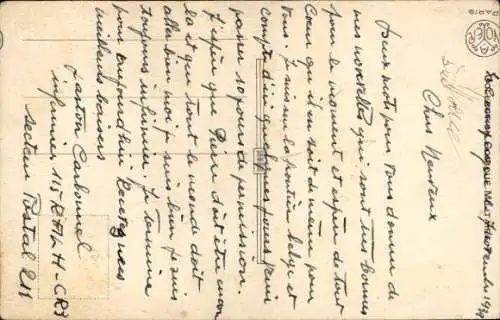 Chers Neveux
Deux mots pour vous donner de
mes nouvelles qui sont très bonnes
pour le moment et espère de tout
Cœur qu'il en soit de même pour
vous. Je suis sur la frontière belge et
compte d'ici quelques jours venir
passer 10 jours de permission.
J'espère que Pierre doit être avec
la et que tout le monde doit
aller bien moi je suis bien je suis
toujours infirmier. Je termine
pour aujourd'hui Recevez mes
meilleurs baisers
Gaston Carbonnel
infirmier 115 R.A.L.H-CR3
secteur Postal 211
PARIS
NOYER